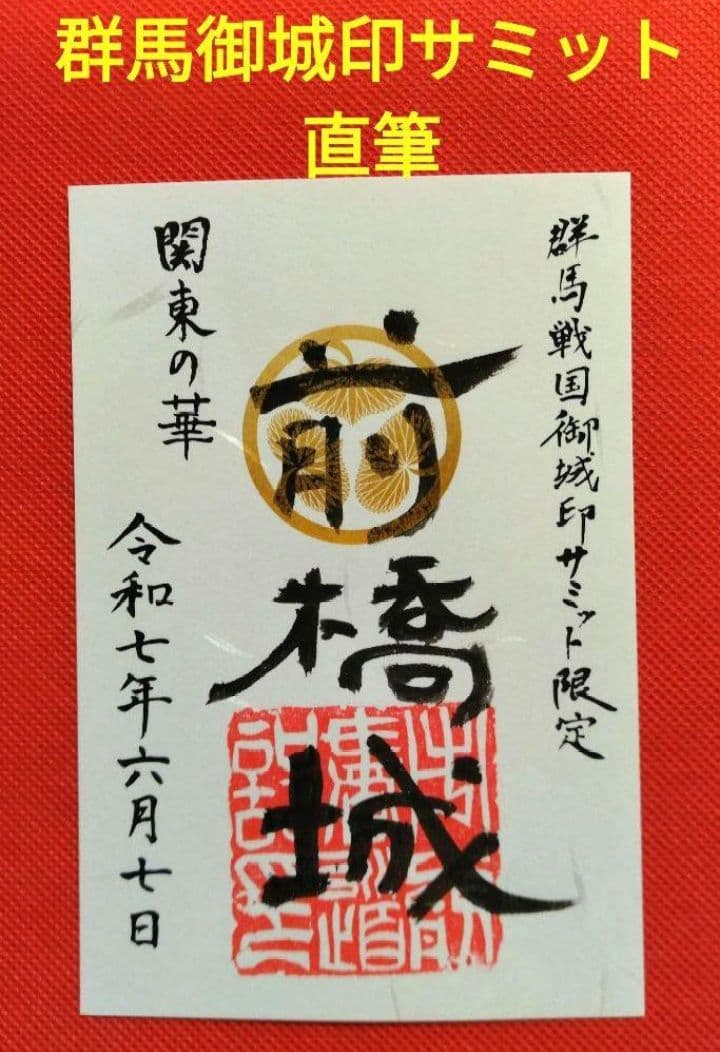 群馬御城印サミット
直筆
群馬戦国御城印サミット限定
前橋城
関東の華
令和七年六月七日